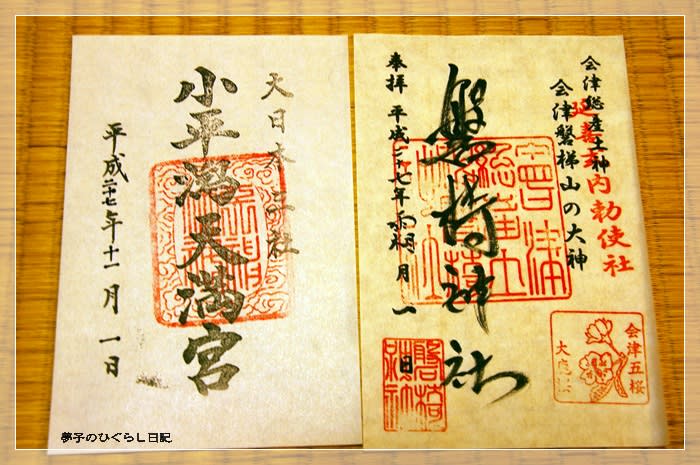 会津総産土神
会津磐梯山の大神
延喜式内勅使社
磐椅神社
奉拝 平成二十七年霜月一日
会津五桜
磐椅神社
小平潟天満宮
平成二十七年十一月一日
夢子のひぐらし日記